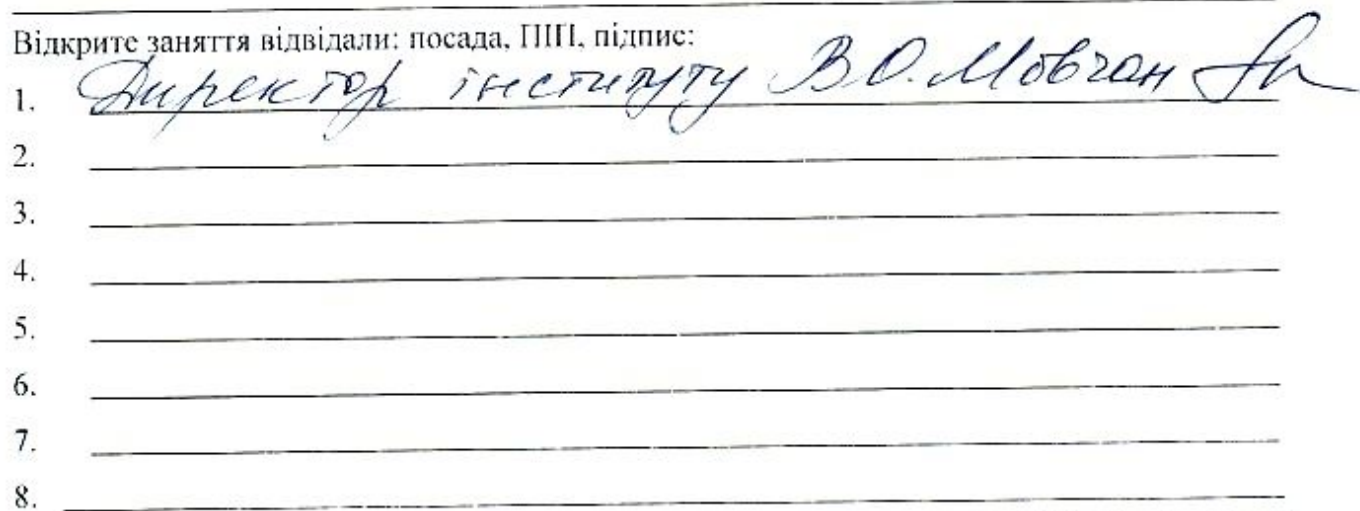 Відкрите заняття відвідали: посада, ПІП, підпис:
1. Директор інституту В.О. Мовчан
2.
3.
4.
5.
6.
7.
8.